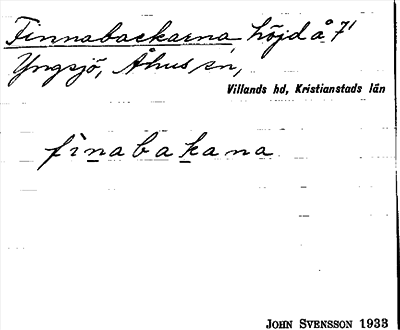 Finnabackarna, höjd å 7'
Yngsjö, Åhus sn,
Villands hd, Kristianstads län
finabakana
JOHN SVENSSON 1933